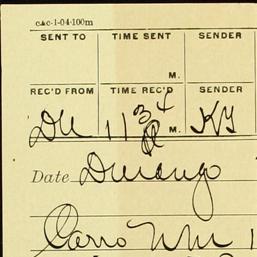 c&c-1-04-100m
SENT TO TIME SENT SENDER
M.
REC'D FROM TIME REC'D SENDER
Du 1134 A M. KY
Date Durango
Carro NM 1